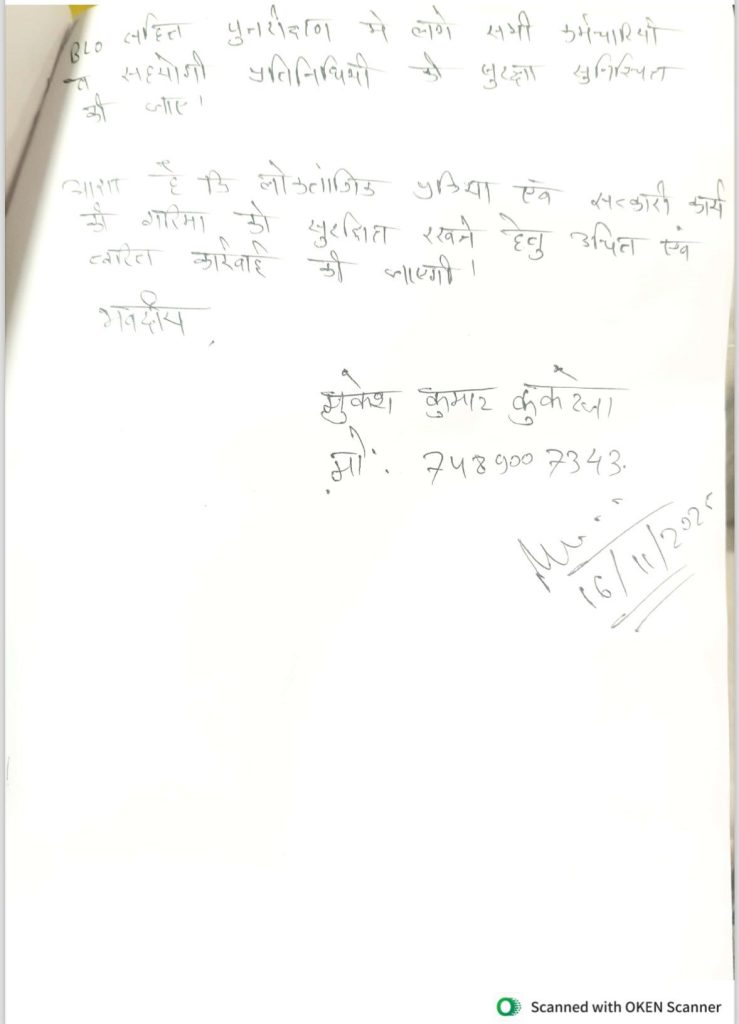 BLO सहित पुनरीक्षण मे लगे सभी कर्मचारियो
व सहयोगी प्रतिनिधियो की सुरक्षा सुनिश्चित
की जाए।
आशा है कि लोकतांत्रिक प्रक्रिया एवं सरकारी कार्य
की गरिमा को सुरक्षित रखने हेतु उचित एवं
त्वरित कार्रवाई की जाएगी।
भवदीय,
मुकेश कुमार कुकरेजा
मो. 7489007343.
16/11/2025
Scanned with OKEN Scanner